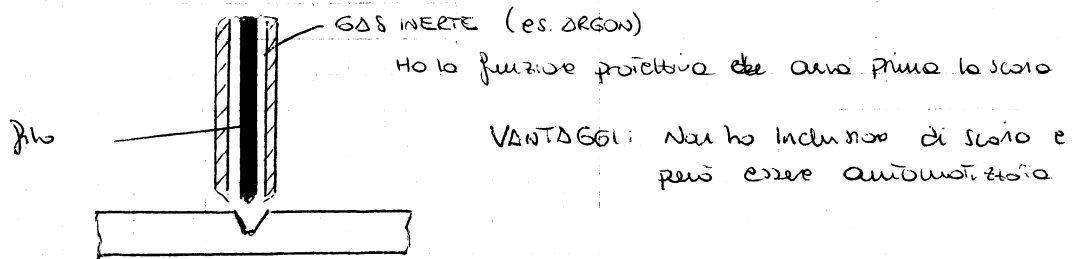 GAS INERTE (es. ARGON)
Ha la funzione protettiva che aveva prima la scoria
filo
VANTAGGI: Non ho inclusioni di scoria e
può essere automatizzata